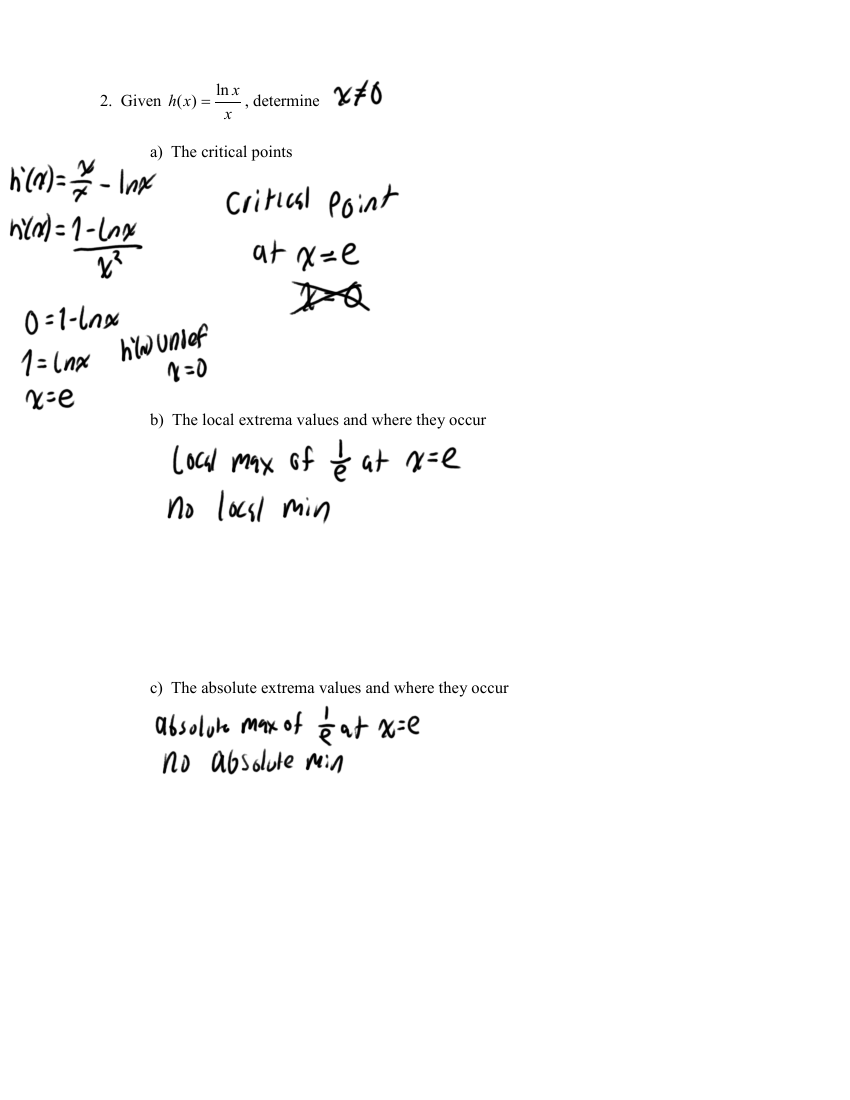 2. Given h(x) = ln x / x , determine x≠0
a) The critical points
h'(x) = x/x - lnx
h'(x) = 1-lnx / x²
Critical Point
at x=e
x=0
0=1-lnx
1=lnx
h'(x) undef
x=0
x=e
b) The local extrema values and where they occur
local max of 1/e at x=e
no local min
c) The absolute extrema values and where they occur
absolute max of 1/e at x=e
no absolute min